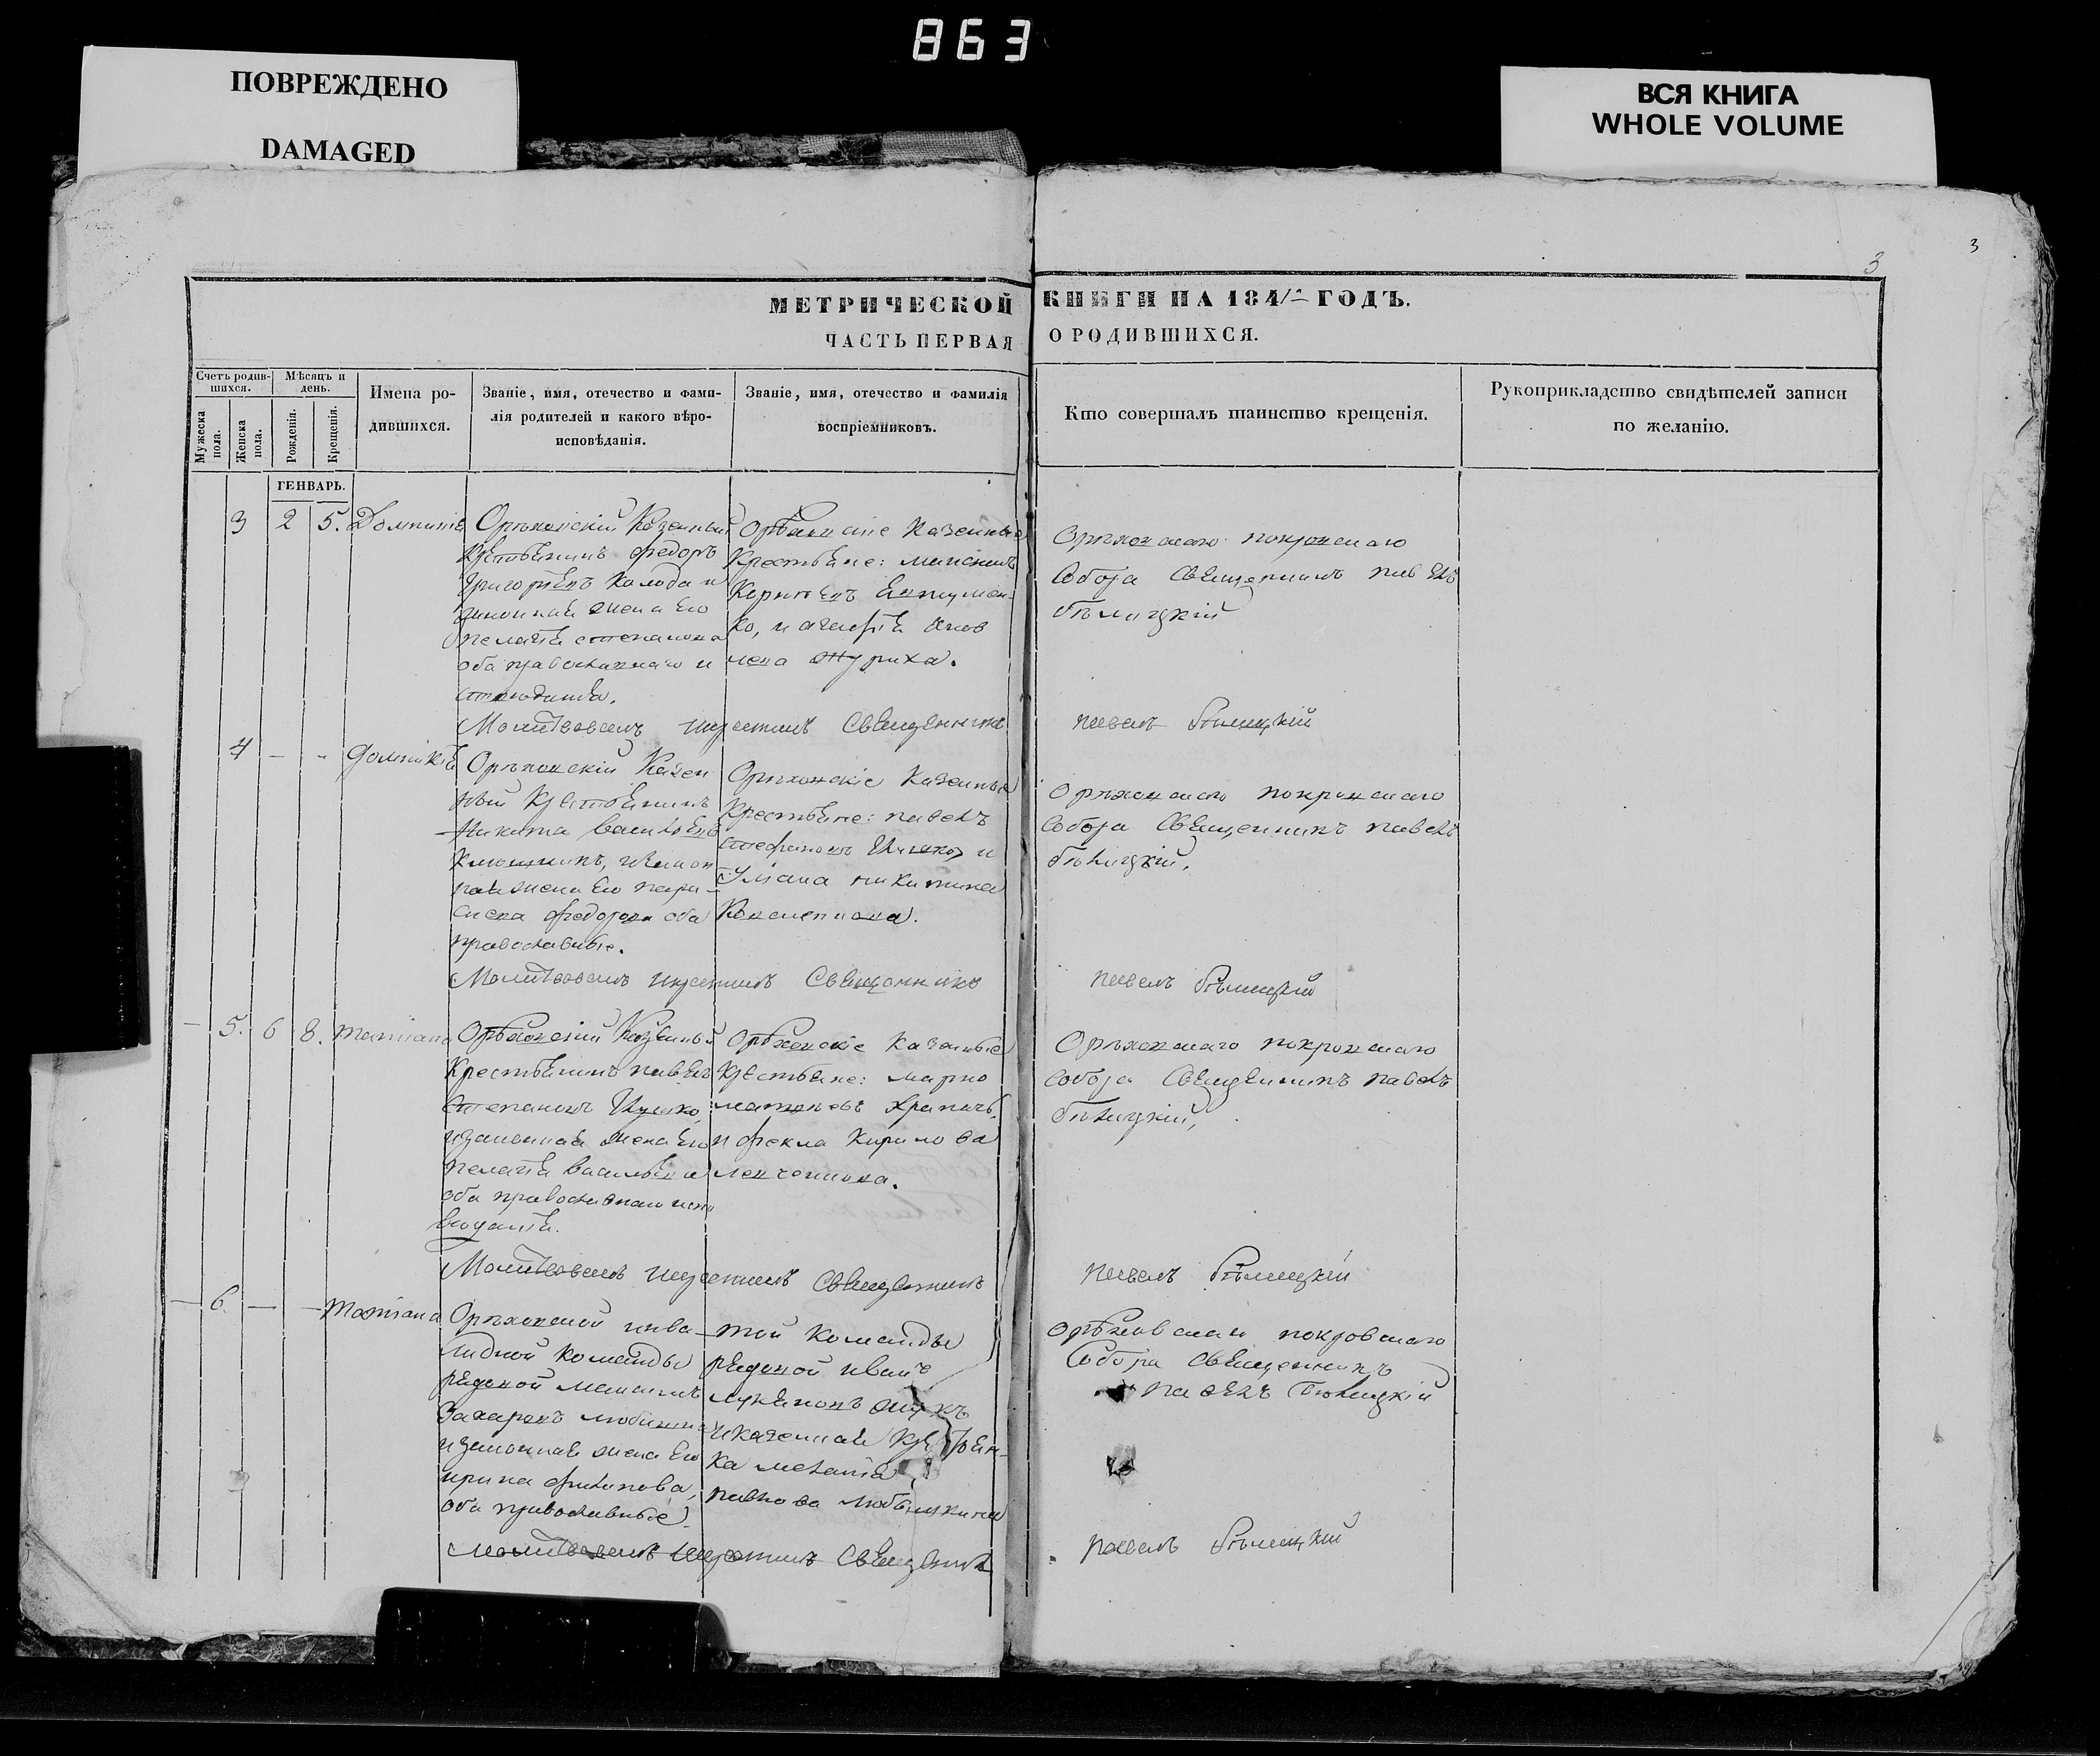 863
ПОВРЕЖДЕНО
DAMAGED
ВСЯ КНИГА
WHOLE VOLUME
3
3
МЕТРИЧЕСКОЙ КНИГИ НА 1841 ГОДЪ.
ЧАСТЬ ПЕРВАЯ О РОДИВШИХСЯ.
Счетъ родив-
шихся.
Мужеска
пола.
Женска
пола.
Мѣсяцъ и
день.
Рожденія.
Крещенія.
Имена ро-
дившихся.
Званіе, имя, отечество и фами-
лія родителей и какого вѣро-
исповѣданія.
Званіе, имя, отечество и фамилія
воспріемниковъ.
Кто совершалъ таинство крещенія.
Рукоприкладство свидѣтелей записи
по желанію.
ГЕНВАРЬ.
3 2 5.
Орѣховскій Казенный
Крестьянинъ Федоръ
Григорьевъ Колода и
законная жена Его
Пелагѣя Степанова
оба православнаго и
Орѣховскіе Казенные
Крестьяне:
ко, и
Орѣховскаго Покровскаго
Собора Священникъ Павелъ
Бѣлицкій
Молитвовалъ и крестилъ Священникъ Павелъ Бѣлицкій
4 - -
Орѣховскій Казен
ный Крестьянинъ
Никита Васильевъ
ная жена Его Пара-
Федорова оба
православные.
Орѣховскіе Казенные
Крестьяне: Павелъ
Стефановъ и
Уліана Никитина
Орѣховскаго Покровскаго
Собора Священникъ Павелъ
Бѣлицкій,
Молитвовалъ и крестилъ Священникъ Павелъ Бѣлицкій
- 5. 6 8. Татіана
Орѣховскій Казенный
Крестьянинъ Павелъ
Степановъ
и законная жена Его
Пелагѣя Васильева
оба православнаго испо
вѣданія.
Орѣховскіе Казенные
Крестьяне: Марко
и Фекла Кирилова
Орѣховскаго Покровскаго
Собора Священникъ Павелъ
Бѣлицкій,
Молитвовалъ и крестилъ Священникъ Павелъ Бѣлицкій
- 6. - - Татіана
Орѣховской инва-
лидной Команды
рядовой Максимъ
Захаровъ
и законная жена Его
Ирина Филипова,
оба православные.
той Команды
рядовой Иванъ
и казенная
ка Меланія
Павлова
Орѣховскаго Покровскаго
Собора Священникъ
Павелъ Бѣлицкій
Молитвовалъ и крестилъ Священникъ Павелъ Бѣлицкій